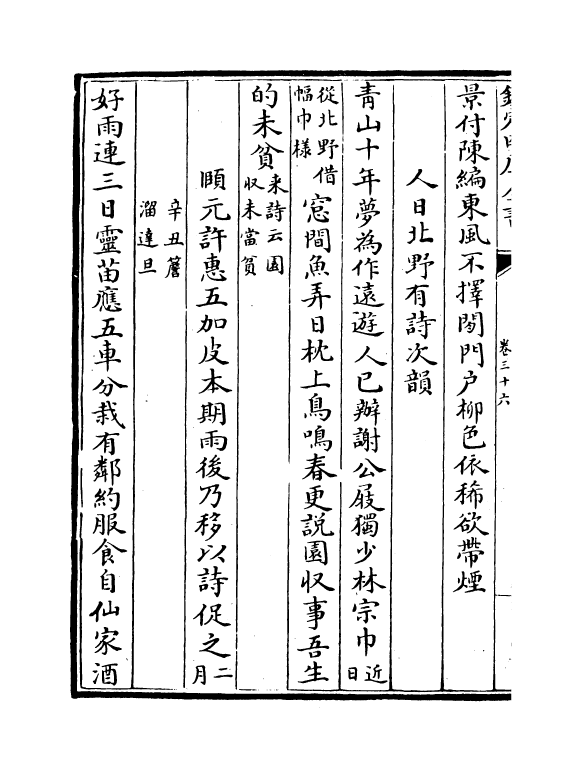 卷三十六
景付陳編東風不擇閑門户柳色依稀欲帶煙
人日北野有詩次韻
青山十年夢為作遠遊人已辦謝公屐獨少林宗巾近日
從北野借幅巾様窓間魚弄日枕上鳥鳴春更説園収事吾生
的未貧来詩云園収未當貧
頤元許惠五加皮本期雨後乃移以詩促之二月
辛丑簷溜達旦
好雨連三日靈苗應五車分栽有鄰約服食自仙家酒